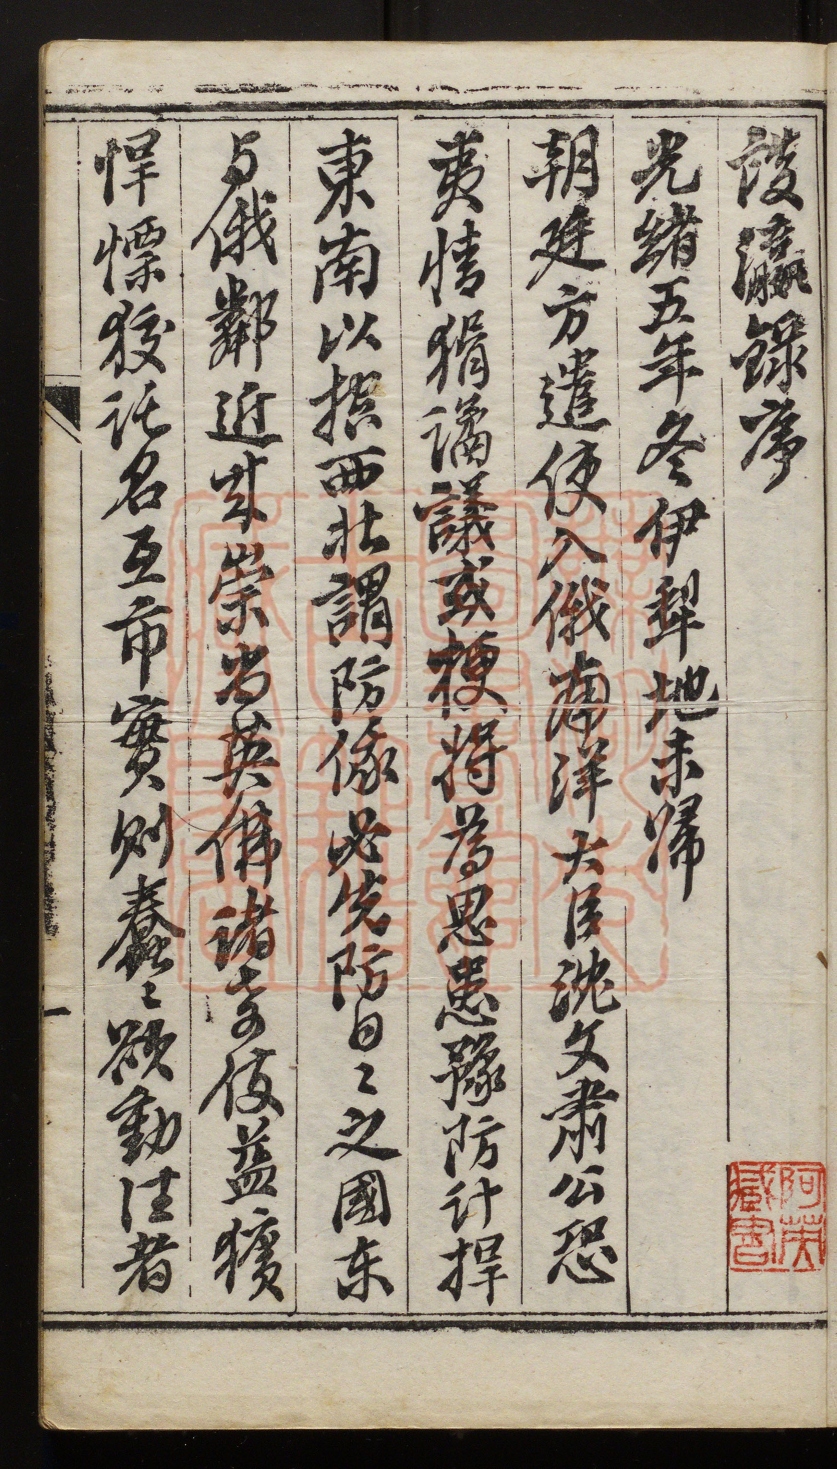 談瀛錄序
光緒五年冬伊犂地未歸
朝廷方遣使入俄南洋大臣沈文肅公恐
夷情狷譎議或梗將為思患豫防計捍
東南以控西北謂防俄必先防日〻之國东
与俄鄰近來崇尚英佛諸奇伎益獷
悍慓狡託名互市實則蠢〻欲動往者
阿英
藏書